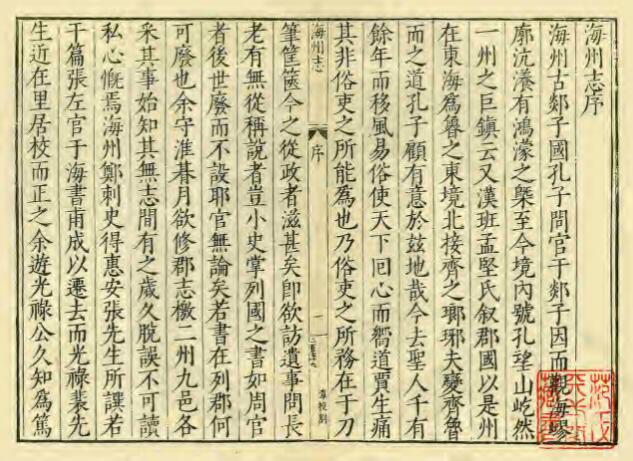 海州志序
海州古郯子國孔子問官于郯子因而觀海
廓沆瀁有鴻濛之槩至今境內號孔望山屹然
一州之巨鎮云又漢班孟堅氏叙郡國以是州
在東海爲魯之東境北接齊之瑯琊夫變齊魯
而之道孔子顧有意於玆地哉今去聖人千有
餘年而移風易俗使天下回心而嚮道賈生痛
其非俗吏之所能爲也乃俗吏之所務在于刀
海州志
序
一
章校刻
筆筐篋今之從政者滋甚矣卽欲訪遺事問長
老有無從稱說者豈小史掌列國之書如周官
者後世廢而不設耶官無論矣若書在列郡何
可廢也余守淮朞月欲修郡志檄二州九邑各
采其事始知其無志間有之歲久脫誤不可讀
私心慨焉海州鄭刺史得惠安張先生所譔若
干篇張左官于海書甫成以遷去而光祿裴先
生近在里居校而正之余遊光祿公久知爲篤